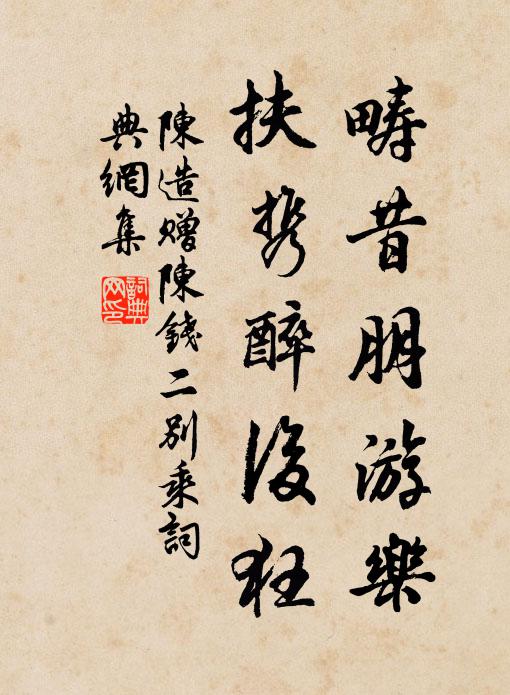 疇昔朋游樂
扶携醉後狂
陳造贈陳錢二別乘詞
典網集
詞典网印